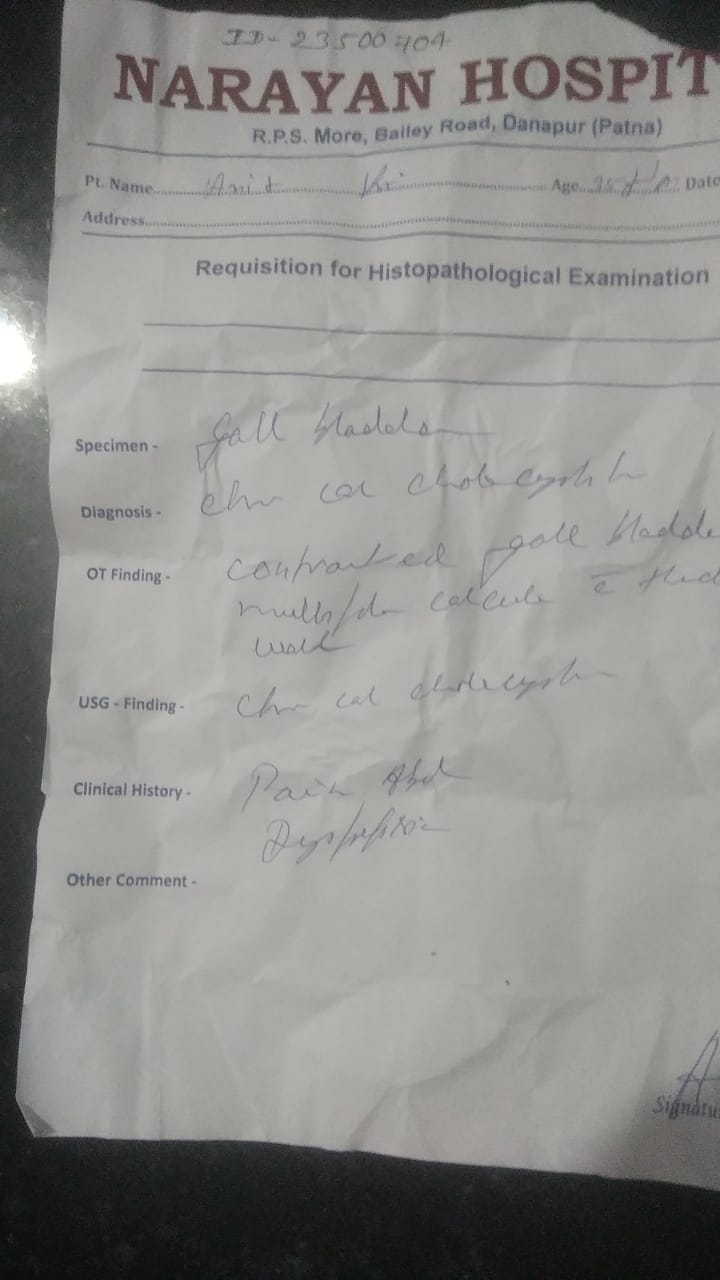 ID- 23500704
NARAYAN HOSPIT
R.P.S. More, Bailey Road, Danapur (Patna)
Pt. Name Amit Kr Age Date
Address
Requisition for Histopathological Examination
Specimen - gall bladder
Diagnosis - chr cal cholecystitis
OT Finding - contracted gall bladde
multiple calculi c̄ thic
wall
USG - Finding - Chr cal cholecyst
Clinical History - Pain Abd
Dyspepsia
Other Comment -
Signatu